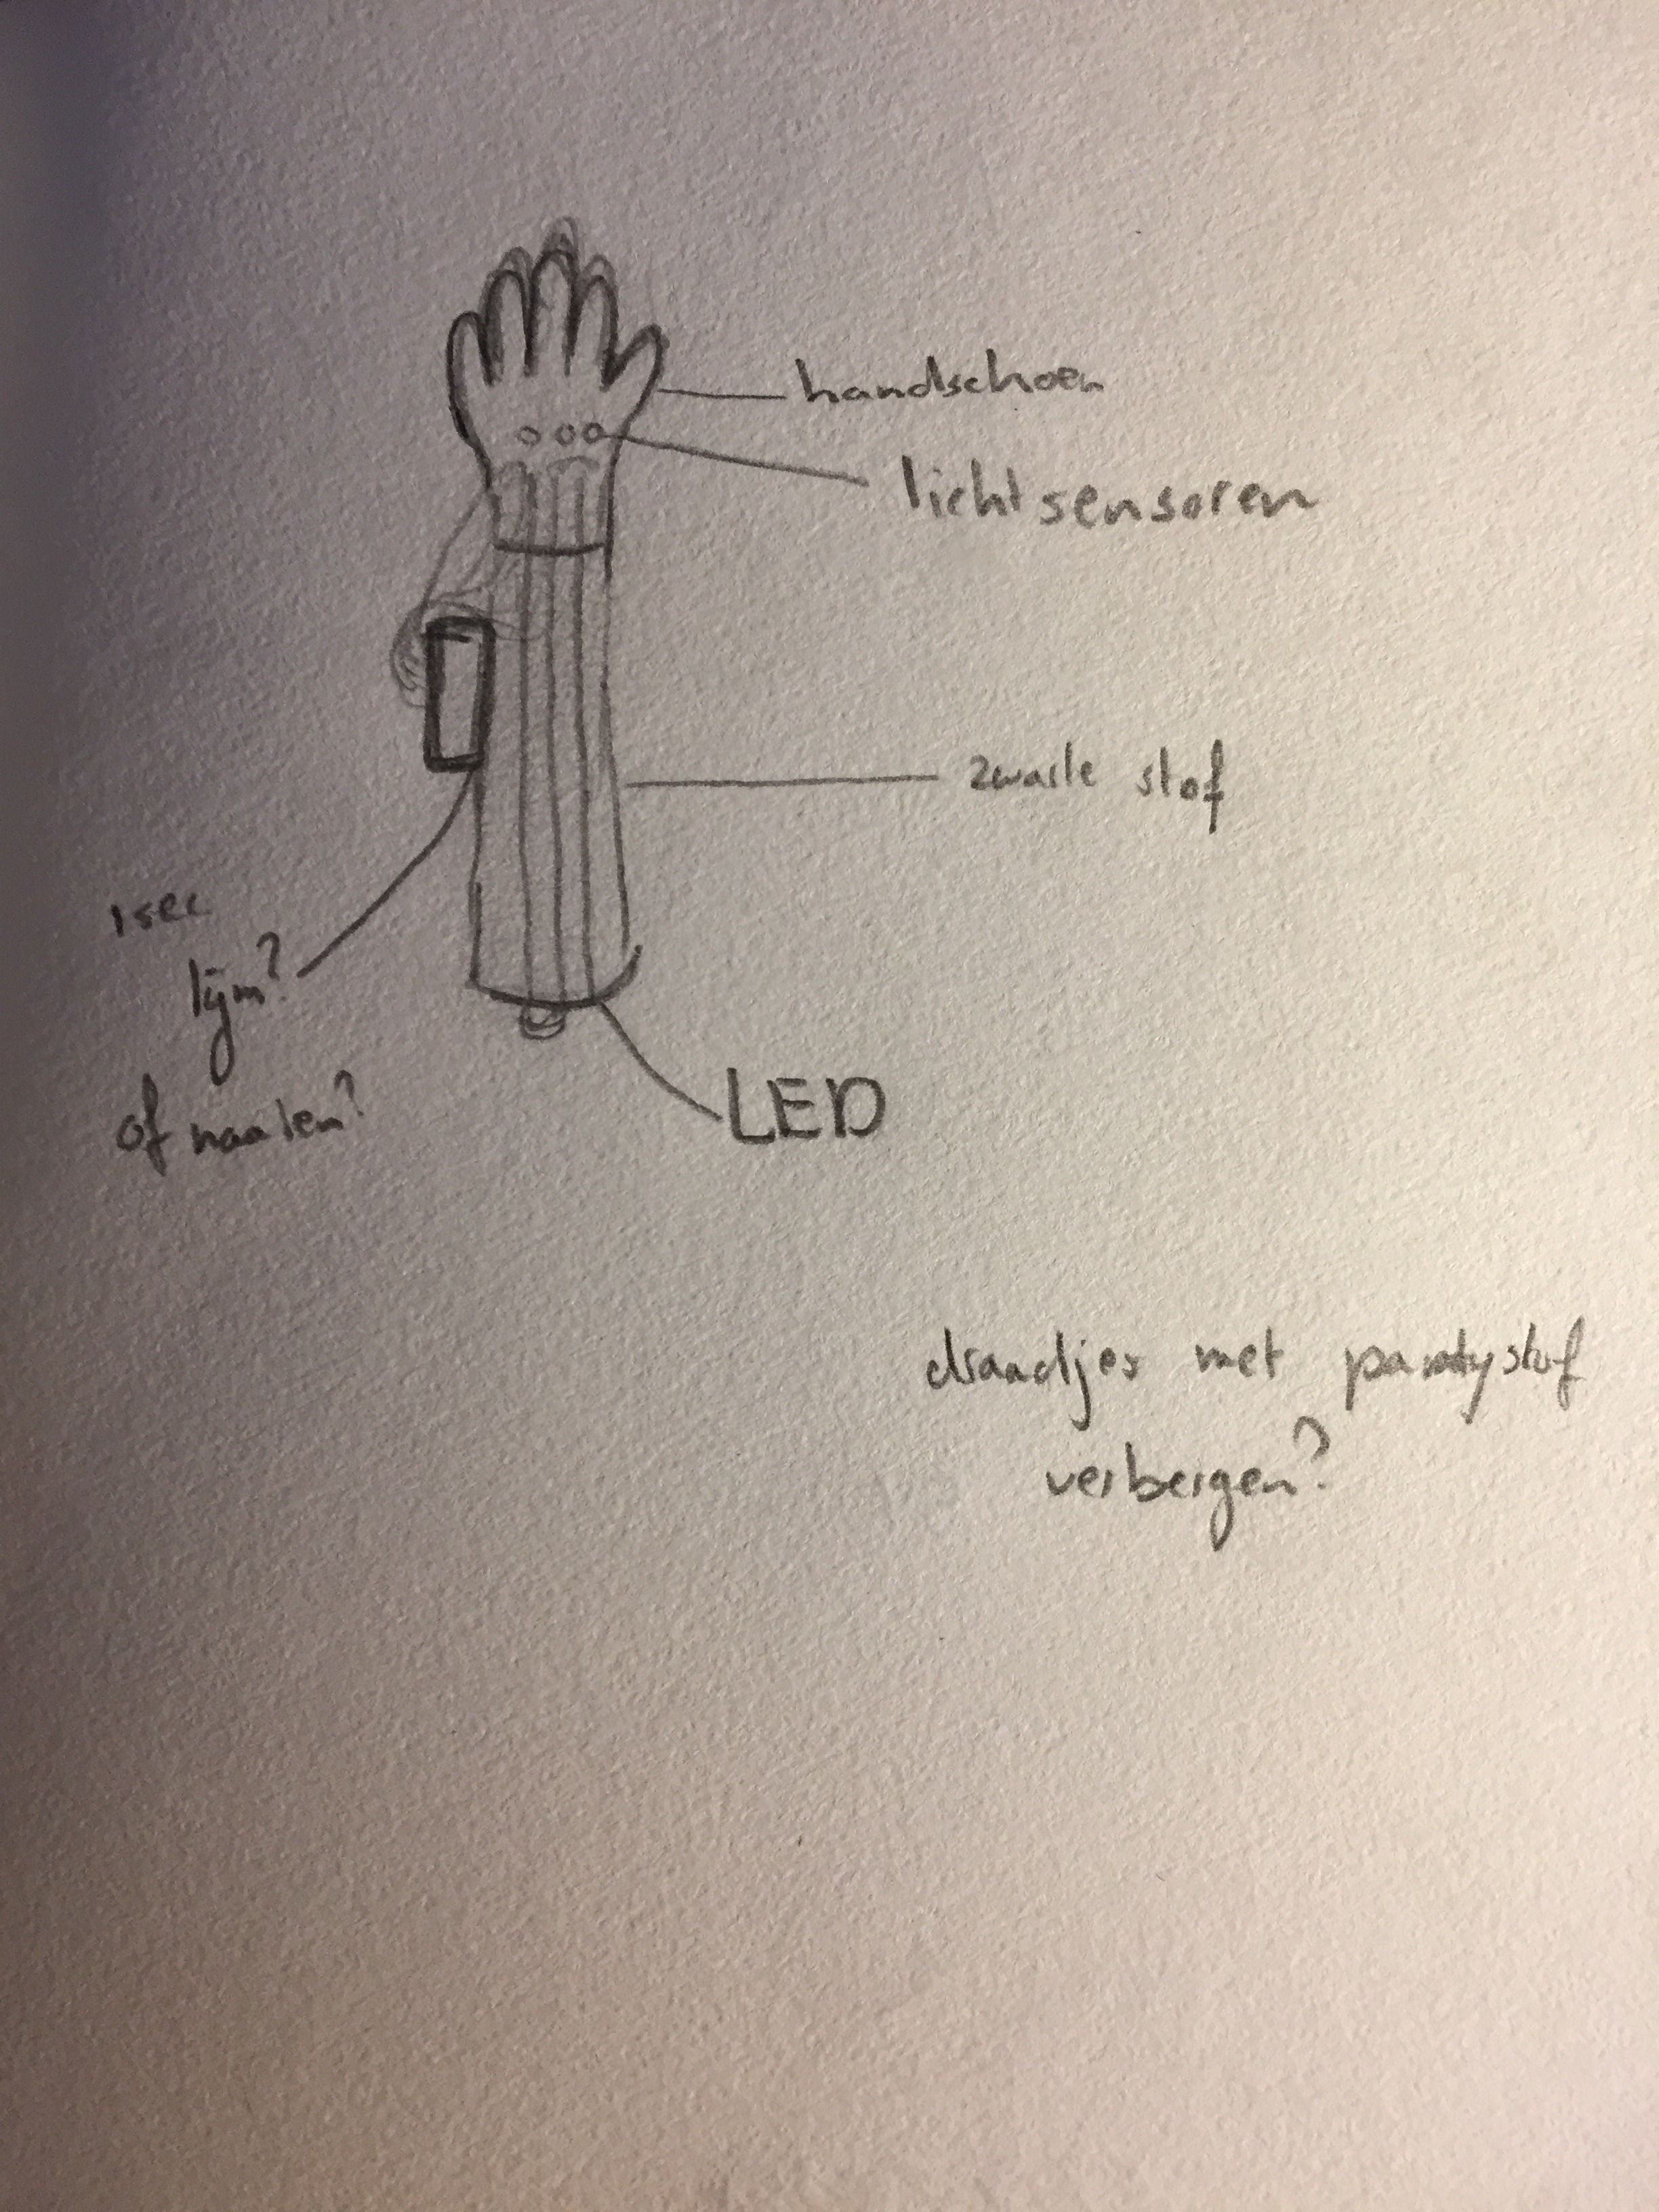 handschoen
lichtsensoren
zwarte stof
1 sec
lijm?
of naaien?
LED
draadjes met pantystof
verbergen?